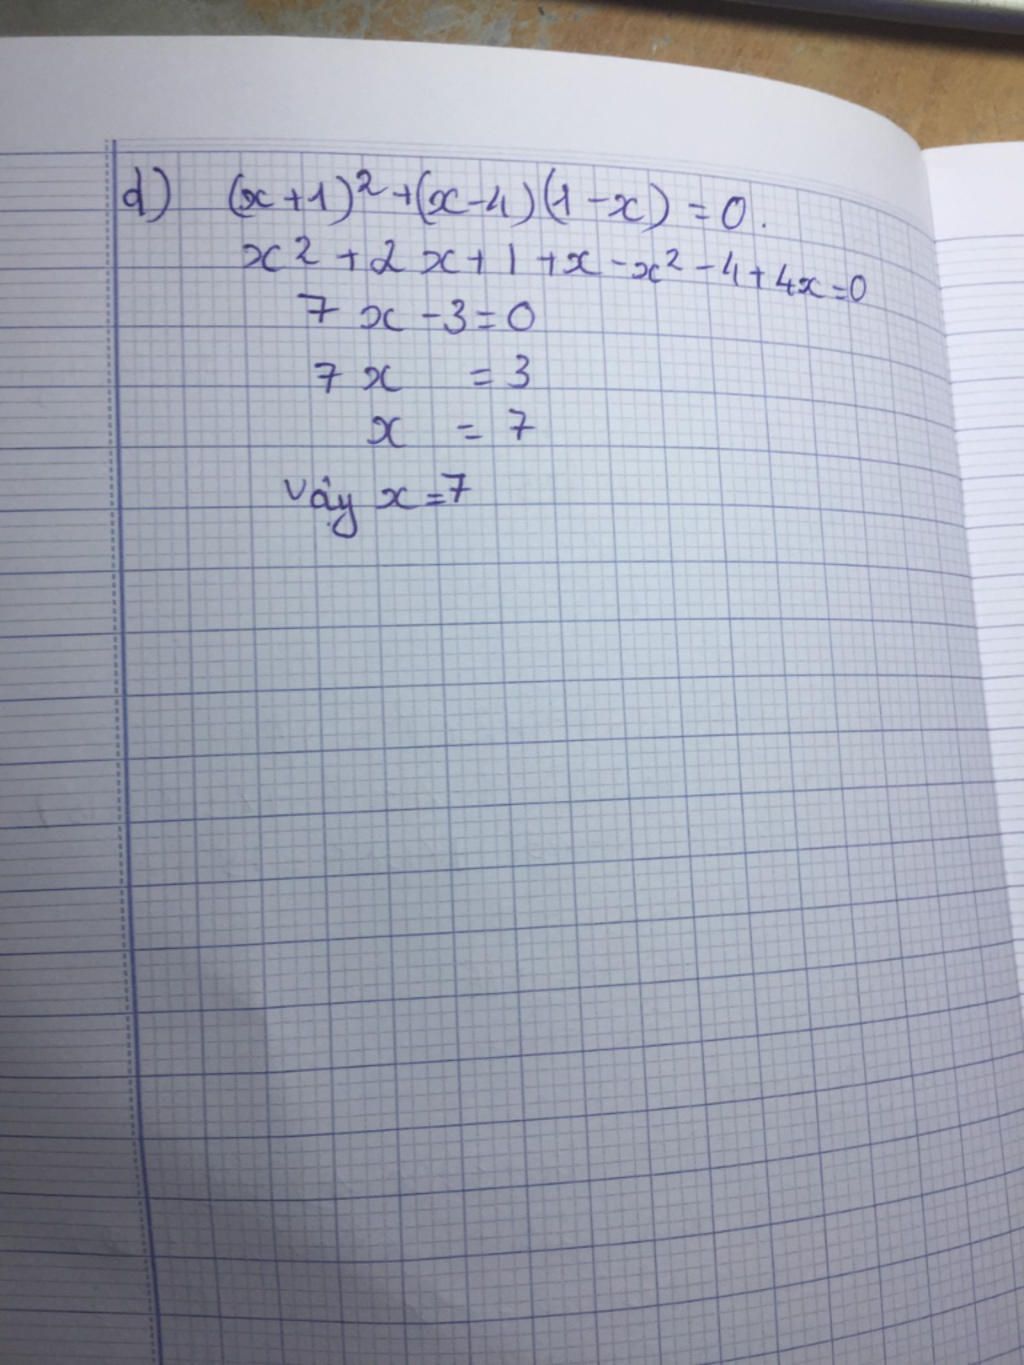 d) (x+1)² + (x-4)(1-x) = 0.
x² + 2x + 1 + x - x² - 4 + 4x = 0
7x - 3 = 0
7x = 3
x = 7
Vậy x = 7